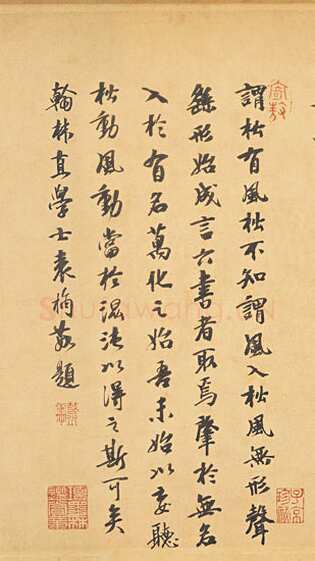 謂松有風松不知謂風入松風無形聲
繇形始成言六書者取焉聲於無名
入於有名萬化之始吾未始以妄聽
松動風動當於混沌以得之斯可矣
翰林直學士袁桷敬題